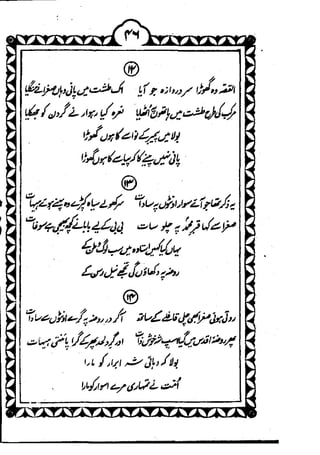 ۴۶
۱۲
القصہ وہ گھوڑا سرِ دروازہ جو آیا اک طشت میں پانی وہاں صغرا نے منگایا
مرکب کی طرح طشت میں ہاتھوں پہ اٹھایا نعرہ کیا رہوار نے گردن کو جھکایا
بولا میں پیمبر کے نواسے کا ہوں گھوڑا
پانی نہیں پینے کا کہ پیاسے کا ہوں گھوڑا
۱۳
یہ ذکر تھا جو آئے سوار اونٹوں پہ سادات سر کھولے سیاہ کپڑے وہ پہنے ہوئے ہیہات
صغرا سے کہا قبرِ محمدؐ پہ چلو سات بی بی کے لیے بابا نے کچھ بھیجی ہے سوغات
یہاں کیا کہیں استادہ ہیں سب لوگ
روضہ پہ دکھاؤں گی تجھے نیل رسن کے
۱۴
روتی ہوئی صغرا بھی چلی قافلے کے ساتھ آ کر درِ روضہ پہ گرے اونٹوں سے سادات
پھر روضۂ اقدس میں گیا سب اور گردِ لحد پھر کے گرا ہیہات
بولا کہ دہائی شہِ ابرار کو مارا
امت نے تمہاری مرے اسوار کو مارا